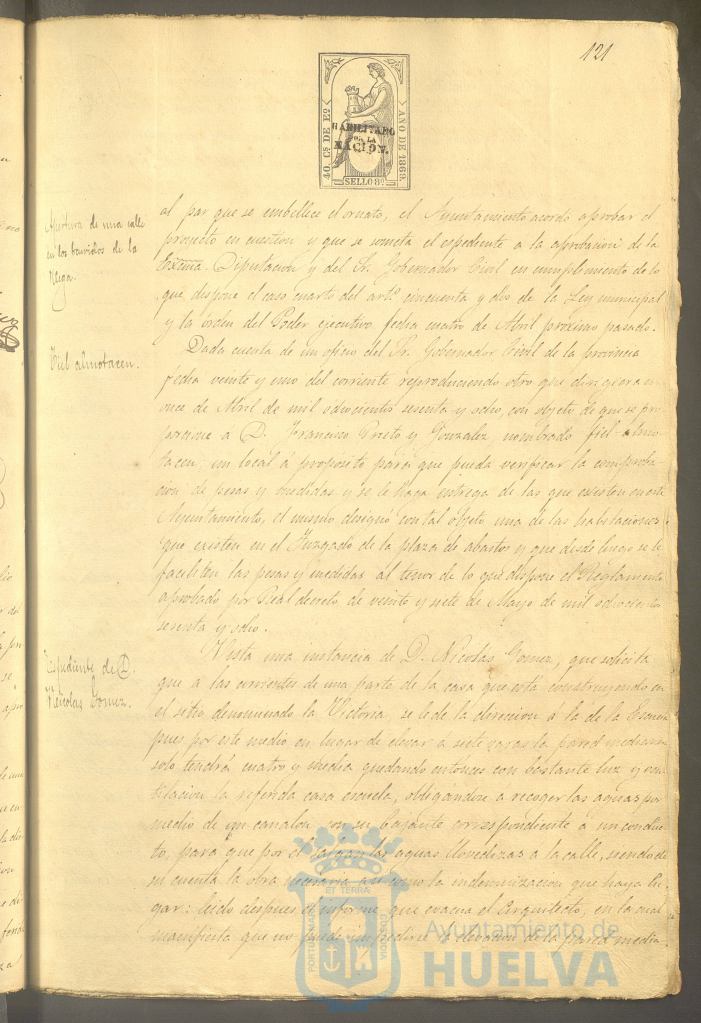 121
40 Cs DE Eº
AÑO DE 1869.
HABILITADO
POR LA
NACION.
SELLO 8º
Apertura de una calle
en los
de la
Vega.
al par que se embellece el ornato, el Ayuntamiento acordó aprobar el
proyecto en cuestion y que se someta el espediente a la aprobacion de la
Exzma. Diputacion y del Sr. Gobernador Civil en cumplimiento de lo
que dispone el caso cuarto del artº cincuenta y dos de la Ley municipal
y la orden del Poder ejecutivo fecha cuatro de Abril próximo pasado.
Fiel almotacen.
Dada cuenta de un oficio del Sr. Gobernador Civil de la provincia
fecha veinte y uno del corriente reproduciendo otro que dirigiera en
once de Abril de mil ochocientos sesenta y ocho, con objeto de que se pro
porcione a D. Francisco Prieto y Gonzalez, nombrado fiel-almo
tacen, un local á propósito para que pueda verificar la comproba
cion de pesas y medidas y se le haga entrega de las que existen en este
Ayuntamiento, el mismo designó con tal objeto una de las habitaciones
que existen en el Juzgado de la plaza de abastos y que desde luego se le
faciliten las pesas y medidas al tenor de lo que dispone el Reglamento
aprobado por Real decreto de veinte y siete de Mayo de mil ochocientos
sesenta y ocho.
Espediente de D.
Nicolas Gomez.
Vista una instancia de D. Nicolas Gomez, que solicita
que a las corrientes de una parte de la casa que está construyendo en
el sitio denominado la Victoria, se le dé la direccion á la de la Escuela
pues por este medio en lugar de elevar á siete varas la pared mediane
solo tendrá cuatro y media quedando entonces con bastante luz y ven
tilacion la referida casa escuela, obligandose a recoger las aguas por
medio de un canalon con su bajante correspondiente a un conduc
to, para que por él salgan las aguas llovedizas a la calle, siendo de
su cuenta la obra necesaria asi como la indemnizacion que haya lu
gar: leido despues el informe que evacua el Arquitecto, en la cual
manifiesta que no puede impedirse la elevacion de la pared media
PORTUS MARIS
ET TERRÆ
CUSTODIA
Ayuntamiento de
HUELVA